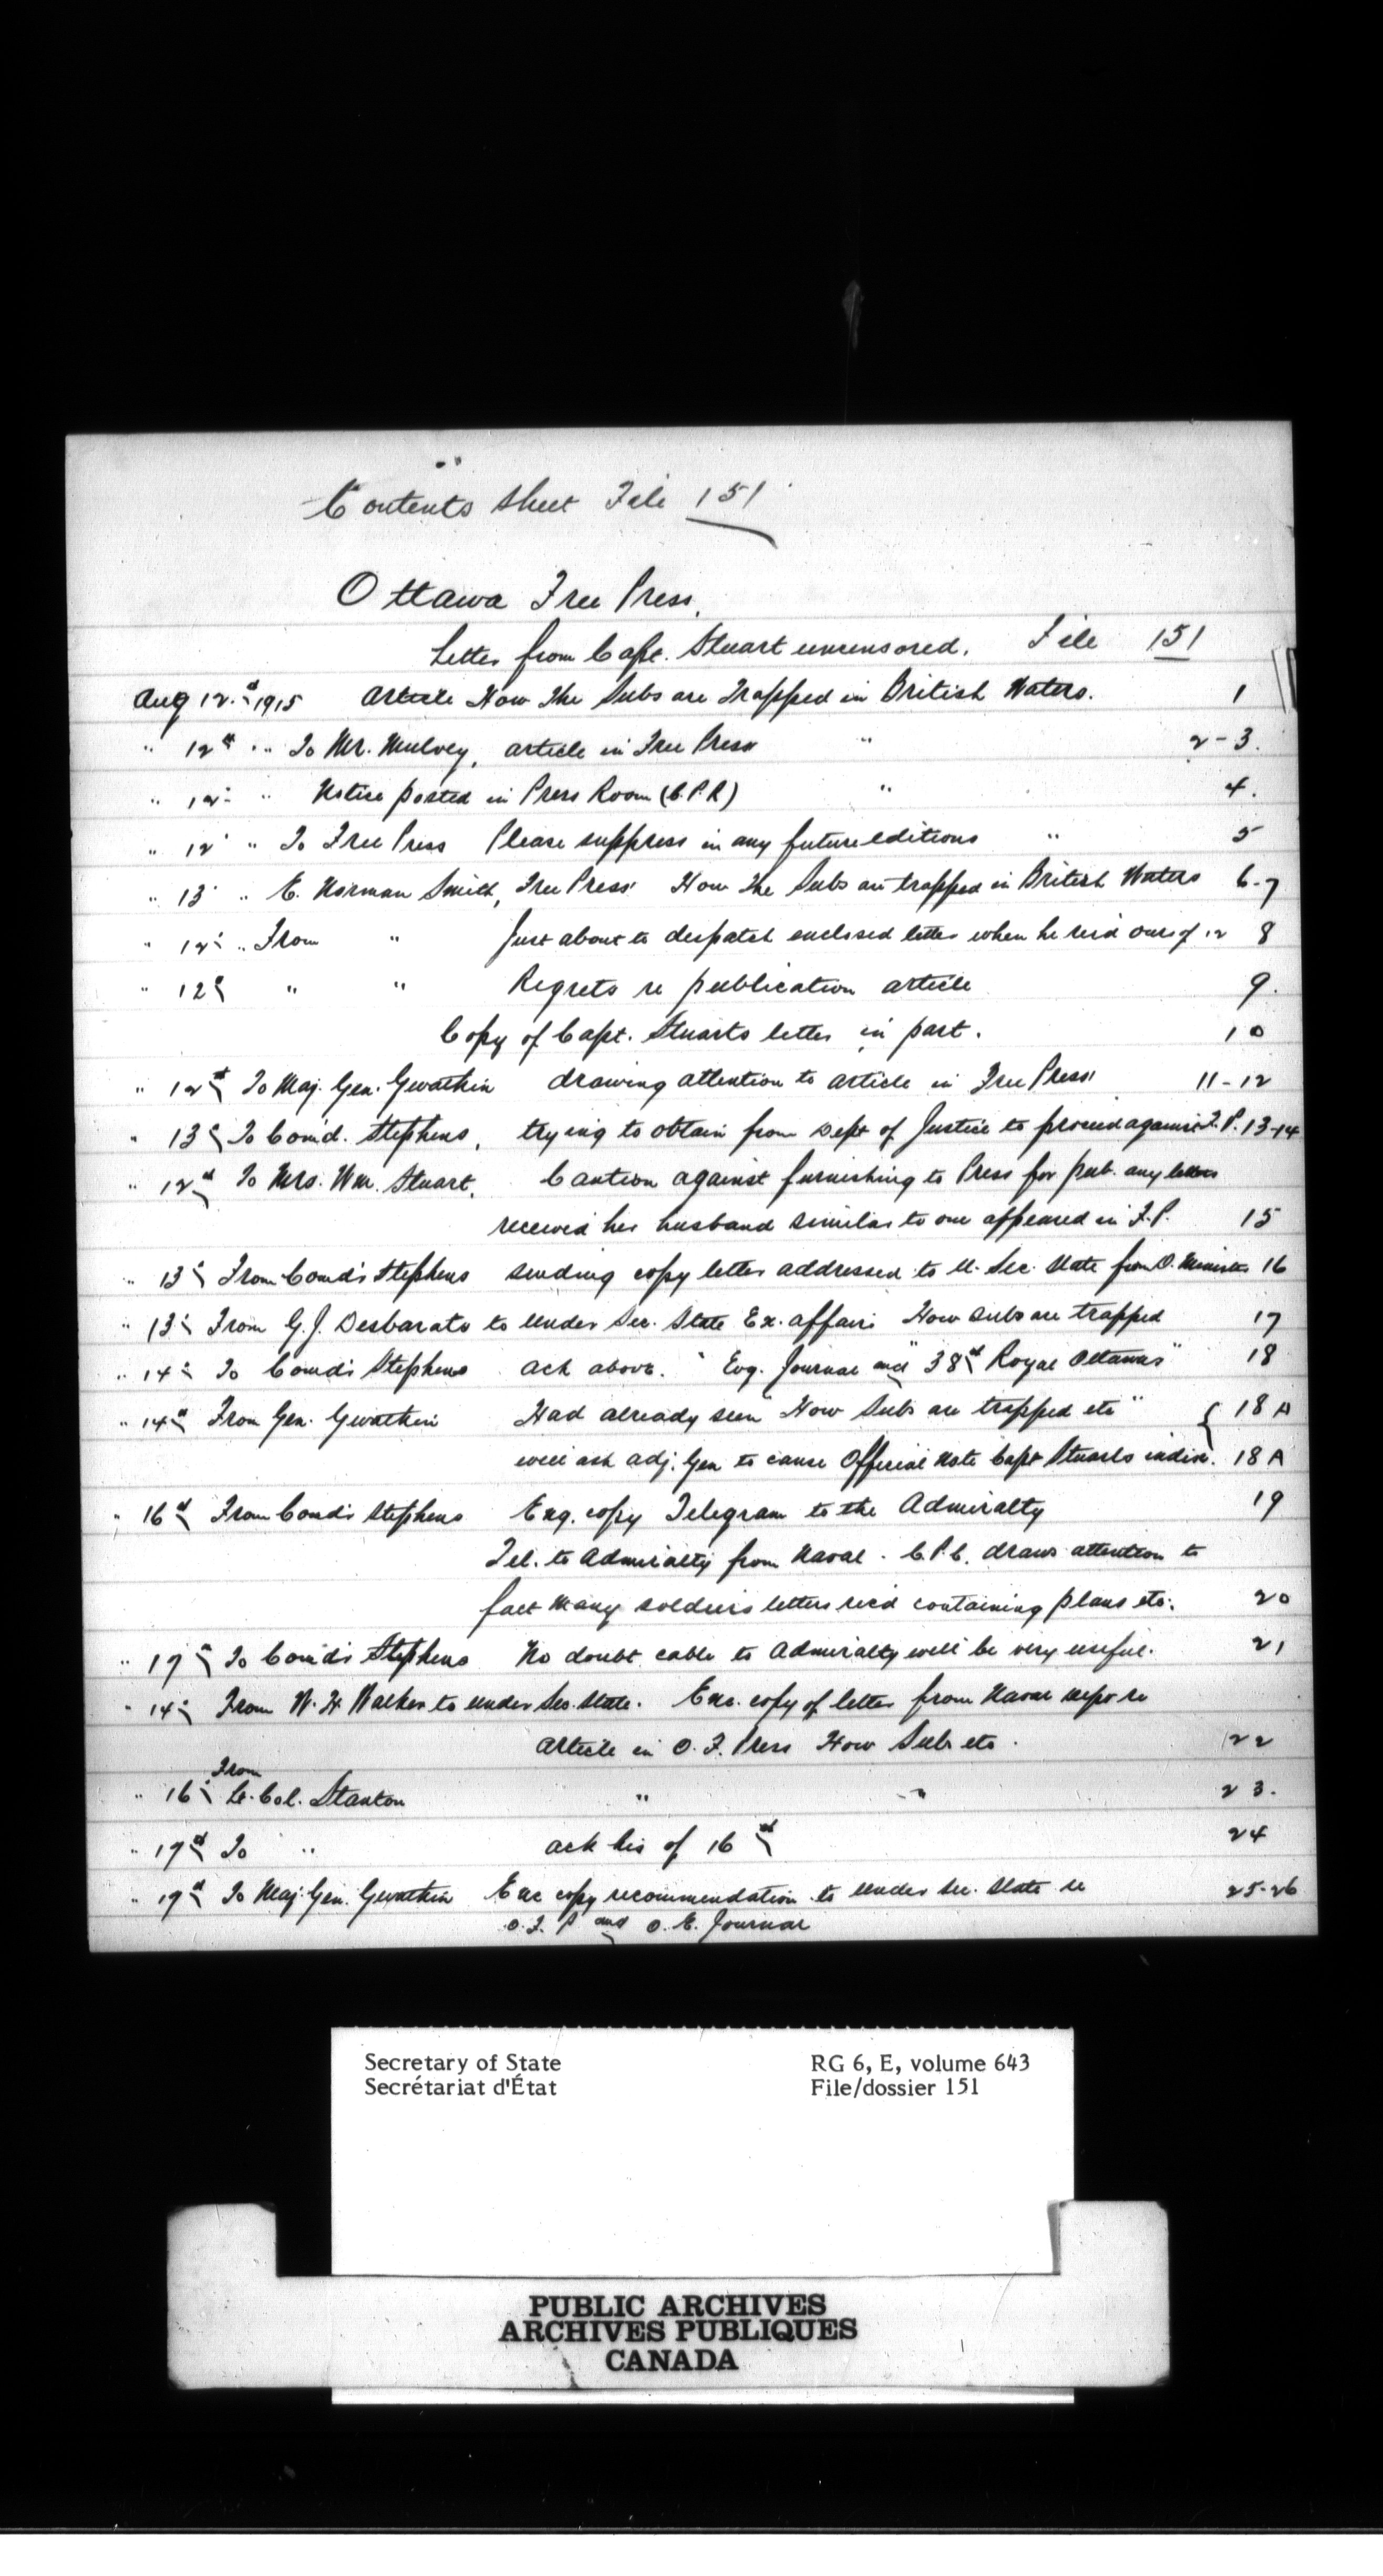 Contents Sheet File 151
Ottawa Free Press.
Letter from Capt. Stuart uncensored. File 151
Aug 12th 1915 Article How The Subs are Trapped in British Waters. 1
" 12th " To Mr. Mulvey, article in Free Press " 2-3.
" 12 " Notice posted in Press Room (C.P.R) " 4.
" 12 " To Free Press Please suppress in any future editions " 5
" 13 " E. Norman Smith, Free Press How The Subs are trapped in British Waters 6-7
" 12 " From " Just about to despatch enclosed letter when he rec'd ours of 12 8
" 12 " " Regrets re publication article 9.
Copy of Capt. Stuarts letter in part. 10
" 12th To Maj. Gen. Gwatkin drawing attention to article in Free Press 11-12
" 13 To Com'd. Stephens, trying to obtain from Dept of Justice to proceed against F.P. 13-14
" 12th To Mrs. Wm. Stuart, Caution against furnishing to Press for pub. any letters
received her husband similar to one appeared in F.P. 15
" 13 From Comd'r Stephens sending copy letter addressed to U. Sec. State from D. Minister 16
" 13 From G.J. Desbarats to Under Sec. State Ex. affairs How subs are trapped 17
" 14 To Comd'r Stephens ack above. "Evg. Journal and "38th Royal Ottawas" 18
" 14th From Gen. Gwatkin Had already seen "How Subs are trapped etc" { 18 A
will ask adj. Gen to cause Official note Capt Stuarts indis. 18 A
" 16th From Comd'r Stephens Enq. copy Telegram to the Admiralty 19
Tel. to Admiralty from Naval. C.P.C. draws attention to
fact many soldiers letters rec'd containing plans etc. 20
" 17 To Comd'r Stephens No doubt cable to Admiralty will be very useful. 21
" 14 From W.H. Walker to Under Sec. State. Enc. copy of letter from Naval Dept re
article in O.F. Press How Subs etc. 22
" 16 From Lt. Col. Stanton " " 23.
" 17th To " ack his of 16th 24
" 19th To Maj. Gen. Gwatkin Enc copy recommendation to Under Sec. State re 25-26
O.F.P and O.E. Journal
Secretary of State RG 6, E, volume 643
Secrétariat d'État File/dossier 151
PUBLIC ARCHIVES
ARCHIVES PUBLIQUES
CANADA